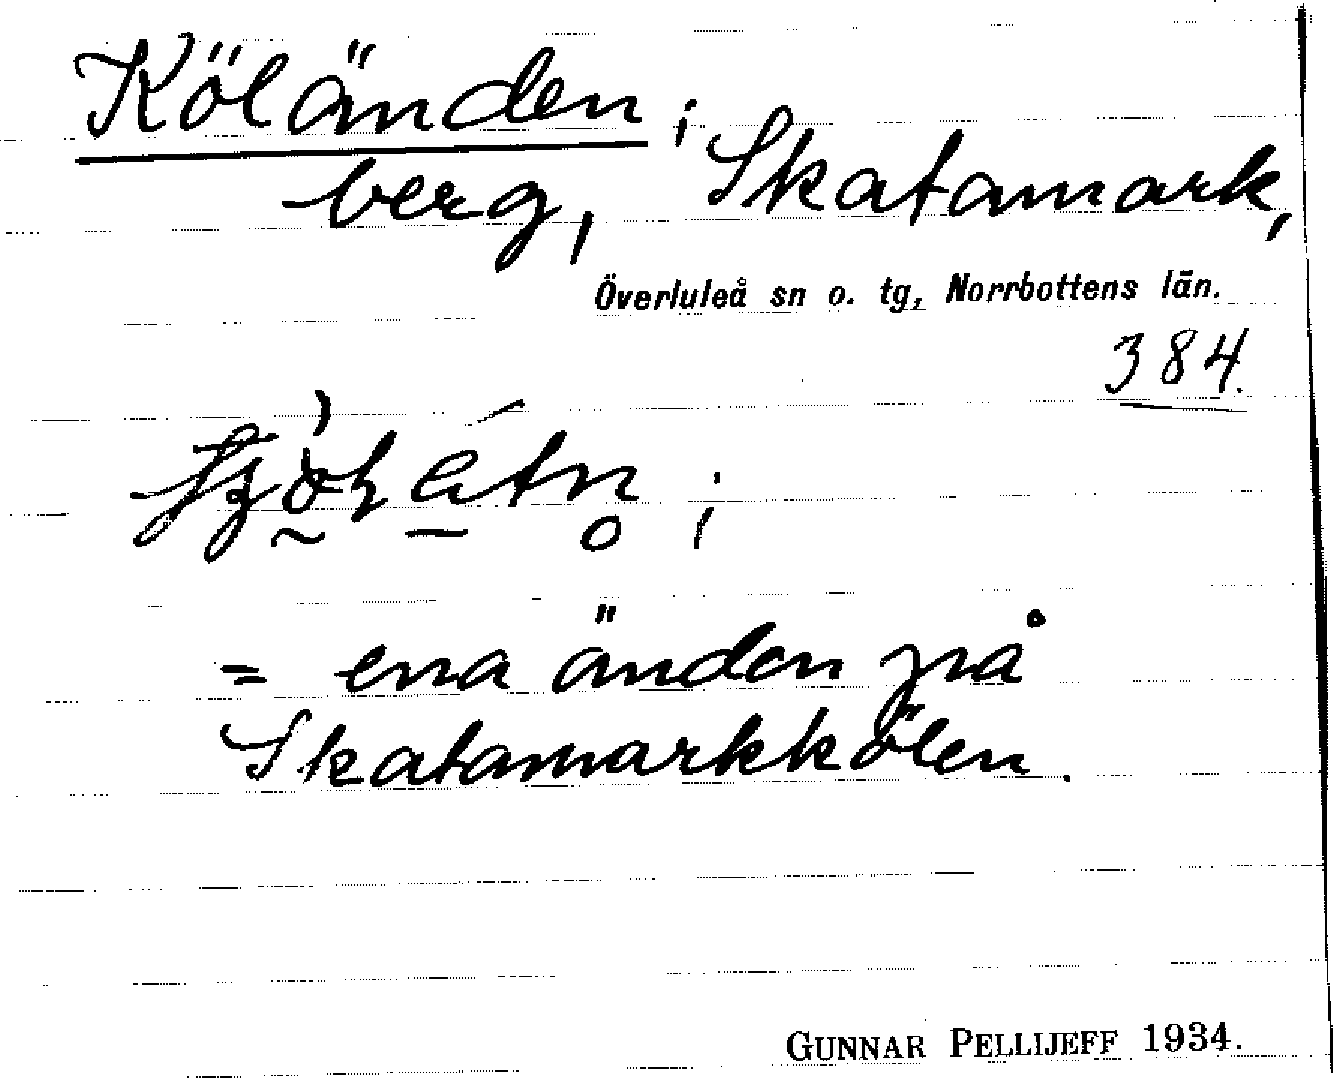 Köländen i Skatamark,
berg,
Överluleå sn o. tg, Norrbottens län.
384.
= ena änden på
Skatamarkkölen.
GUNNAR PELLIJEFF 1934.